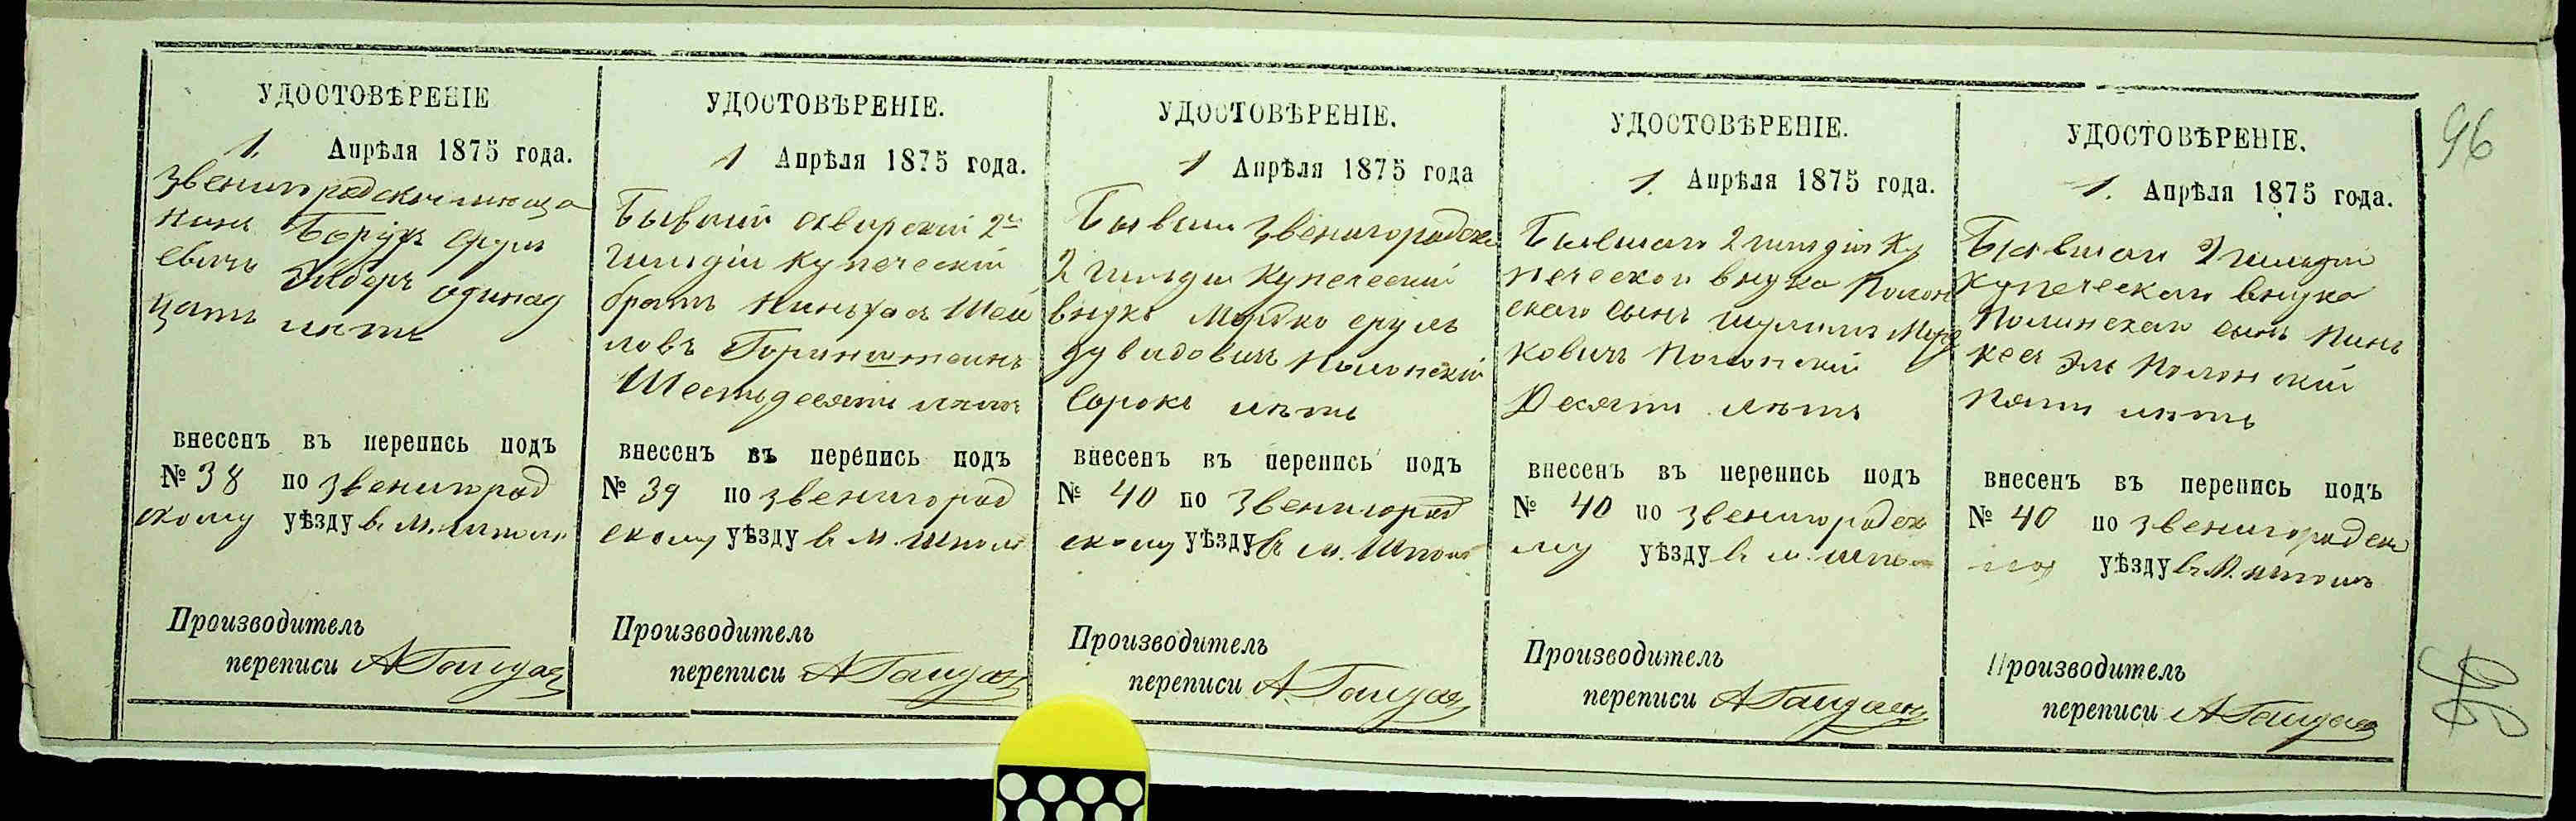 96
УДОСТОВѢРЕНІЕ
1. Апрѣля 1875 года.
Звенигородскій мѣща
нинъ Борухъ Срул
евичъ одинад
цать лѣтъ
внесенъ въ перепись подъ
№ 38 по Звенигород
скому уѣзду в м. Шполѣ
Производитель
переписи
УДОСТОВѢРЕНІЕ.
1 Апрѣля 1875 года.
Бывшій сквирскій 2й
гильдіи купеческій
братъ Пиньхасъ Шеи
ловъ
Шестьдесяти лѣтъ
внесенъ въ перепись подъ
№ 39 по Звенигород
скому уѣзду в м. Шполѣ
Производитель
переписи
УДОСТОВѢРЕНІЕ.
1 Апрѣля 1875 года
Бывши Звенигородски
2 гильдіи купеческій
внукъ Мордко Сруль
Дувидовичъ Полонскій
Сорокъ лѣтъ
внесенъ въ перепись подъ
№ 40 по Звенигород
скому уѣзду в м. Шполѣ
Производитель
переписи
УДОСТОВѢРЕНІЕ.
1. Апрѣля 1875 года.
Бывшаго 2 гильдіи Ку
печескаго внука Полон
скаго сынъ Шулимъ Морд
ковичъ Полонскій
Десяти лѣтъ
внесенъ въ перепись подъ
№ 40 по Звенигородск
му уѣзду в м. Шполѣ
Производитель
переписи
УДОСТОВѢРЕНІЕ.
1. Апрѣля 1875 года.
Бывшаго 2 гильдіи
Купеческаго внука
Полинскаго сынъ Пинь
Полонскій
Пяти лѣтъ
внесенъ въ перепись подъ
№ 40 по Звенигородск
уѣзду в м. Шполѣ
Производитель
переписи